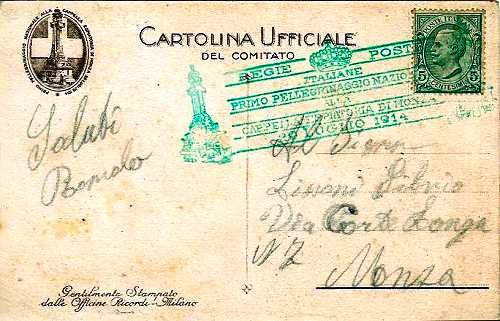 CARTOLINA UFFICIALE
DEL COMITATO
REGIE POSTE
ITALIANE
PRIMO PELLEGRINAGGIO NAZIO
ALLA
CAPPELLA ESPIATORIA DI MONZA
LUGLIO 1914
5
Saluti
Romolo
Al Signor
Lissoni Silvio
Via Corte Longa
N 7
Monza
Gentilmente Stampato
dalle Officine Ricordi - Milano